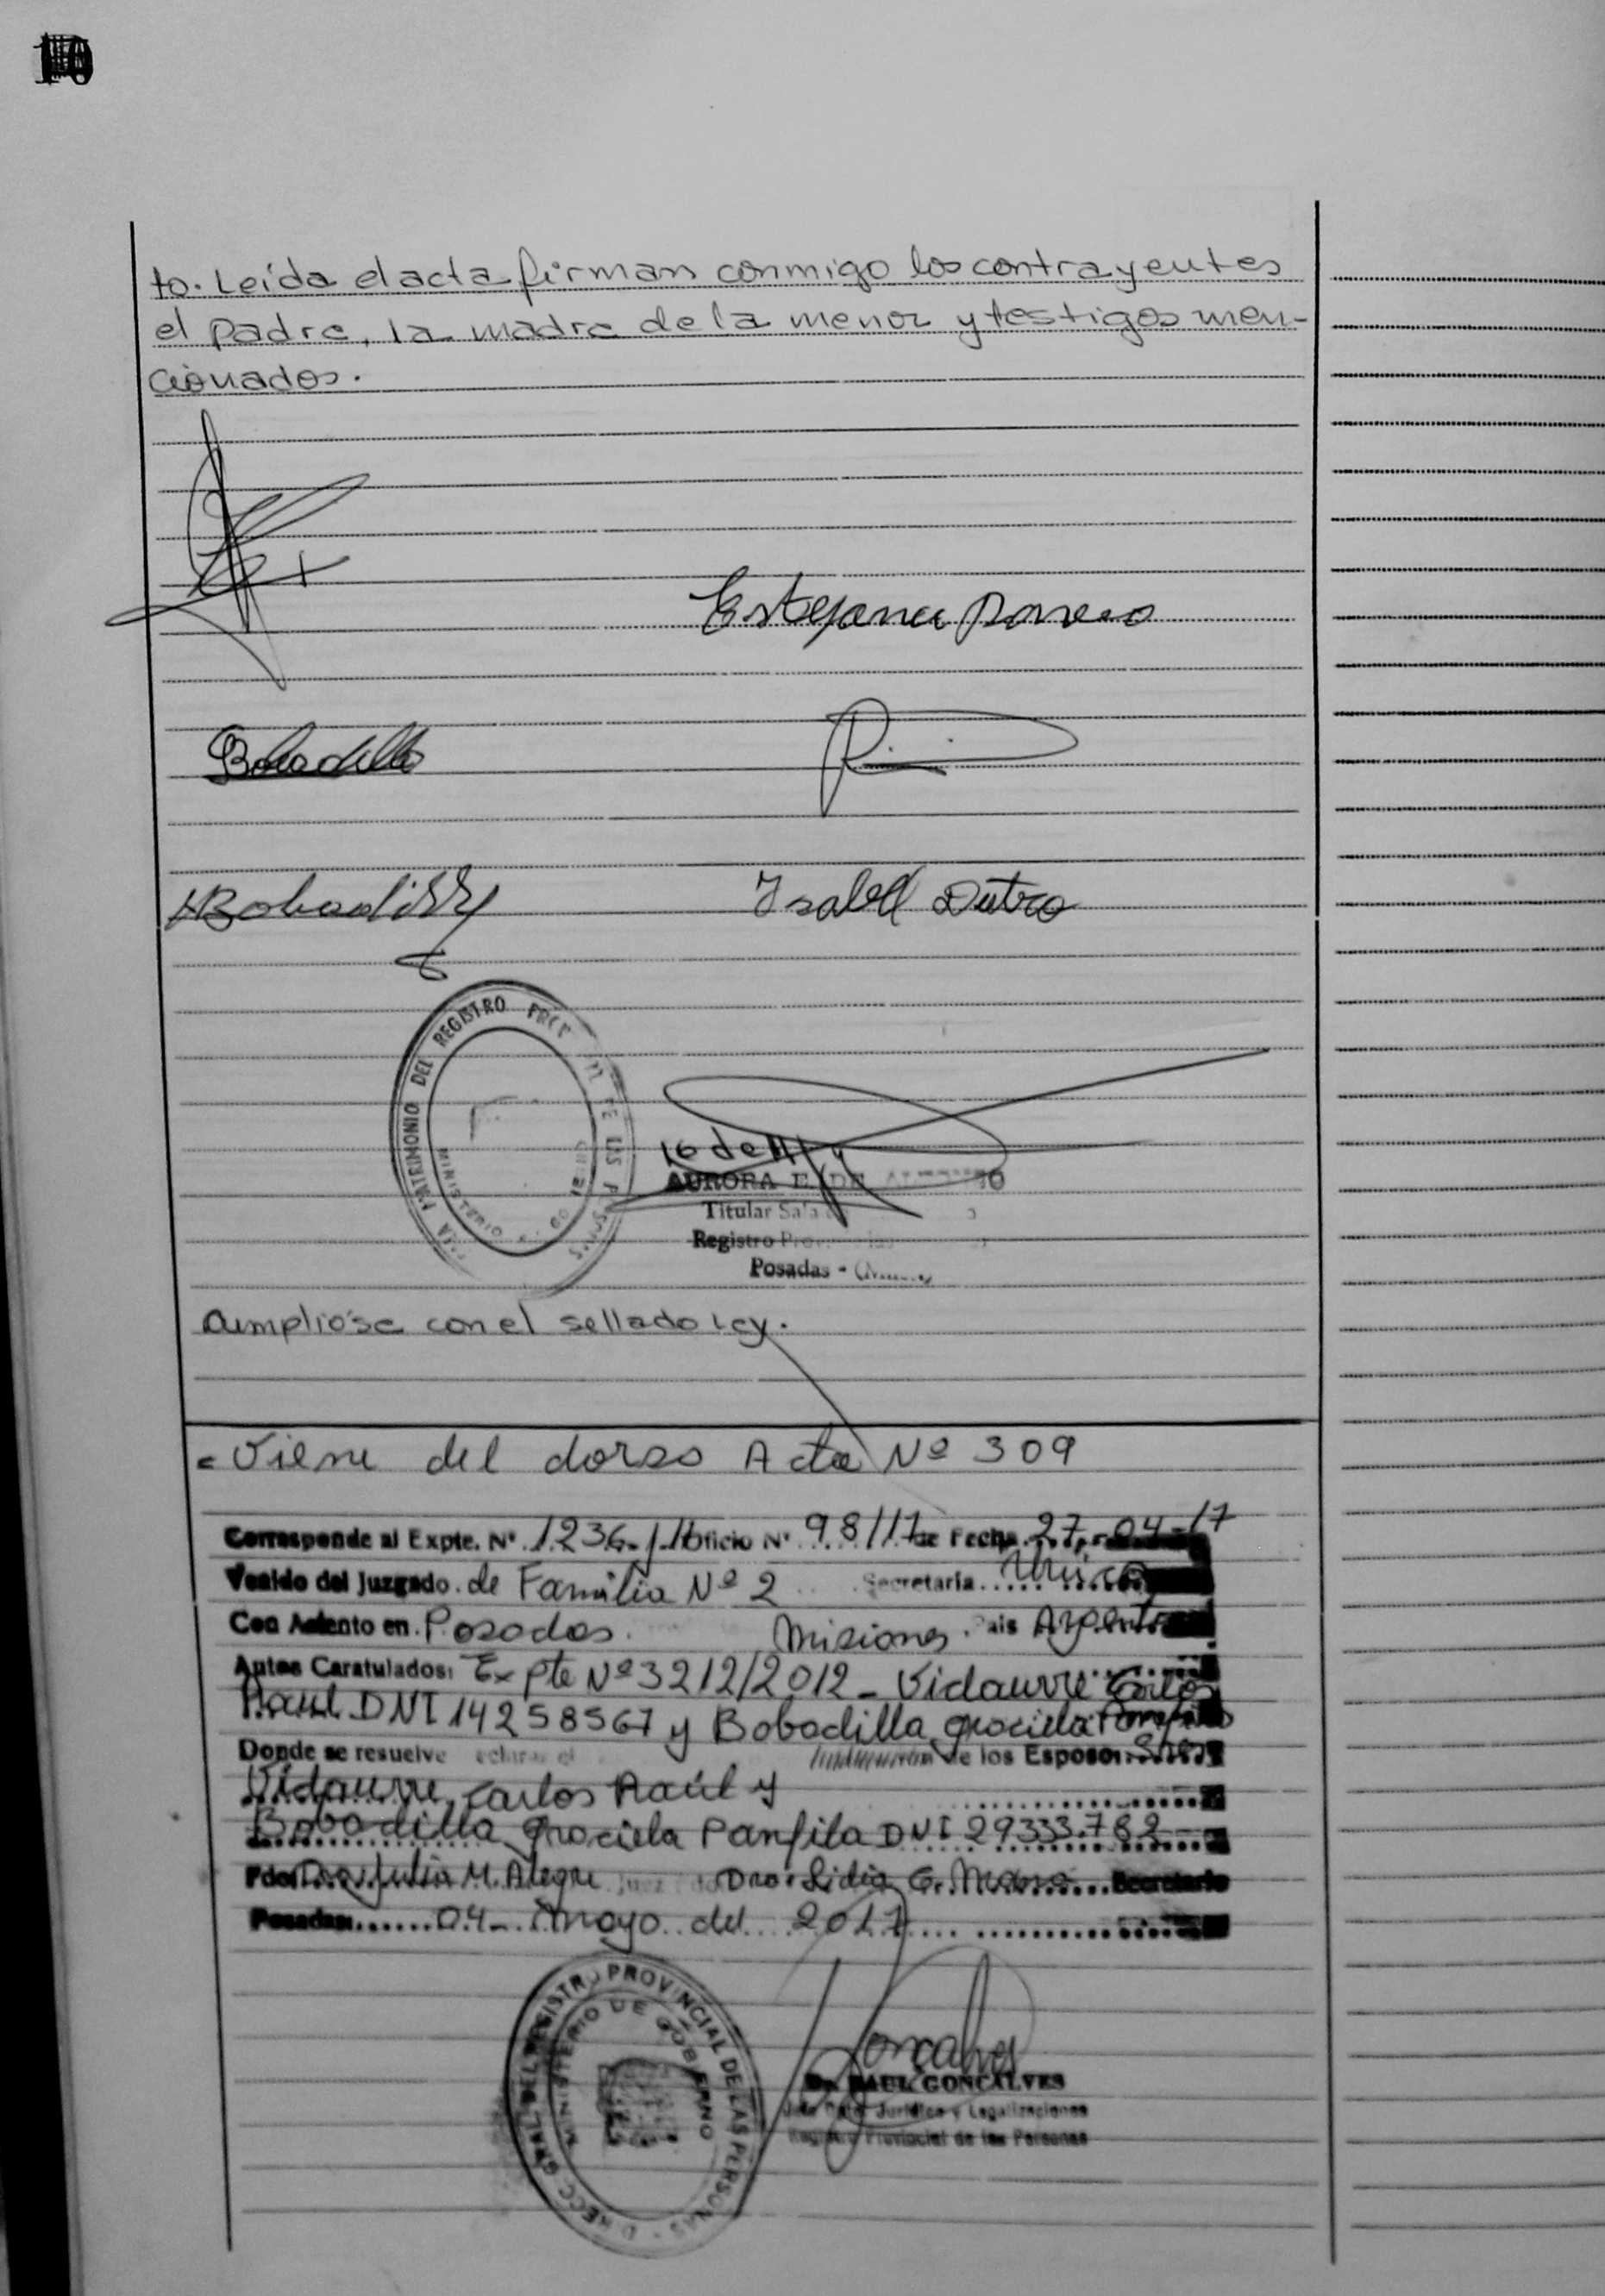 10
to. Leída el acta firman conmigo los contrayentes
el padre, la madre de la menor y testigos men-
cionados.
Bobadilla
Isabel Dutra
MATRIMONIO DEL REGISTRO
MINISTERIO
16 de
AURORA E. DE
Titular Sala
Registro
Posadas -
Cumplióse con el sellado Ley.
= Viene del dorso Acta Nº 309
Corresponde al Expte. Nº 1236 Oficio Nº 98/17 de Fecha 27-04-17
Venido del Juzgado de Familia Nº 2 Secretaría Única
Con Asiento en Posadas Misiones País
Autos Caratulados: Expte Nº 3212/2012 - Vidaurre Carlos
Raul DNI 14258567 y Bobadilla Graciela
Donde se resuelve de los Esposos
Vidaurre, Carlos Raúl y
Bobadilla Graciela Panfila DNI 29333.782
Julia M. Alegre Dra. Lidia G. Secretario
Posadas 04 - mayo del 2017
DIRECC. GRAL. DEL REGISTRO PROVINCIAL DE LAS PERSONAS
MINISTERIO DE GOBIERNO
RAUL GONCALVES
Jurídica y Legalizaciones
Provincial de las Personas